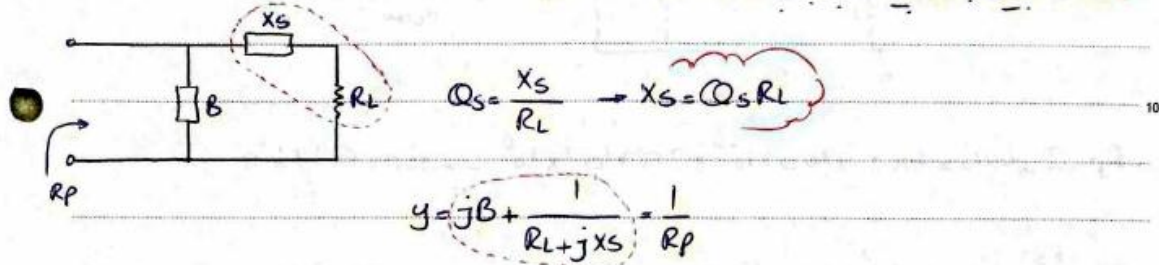 XS
B
RL
RP
QS = XS / RL → XS = QS RL
10
y = jB + 1 / (RL + jXS) = 1 / RP